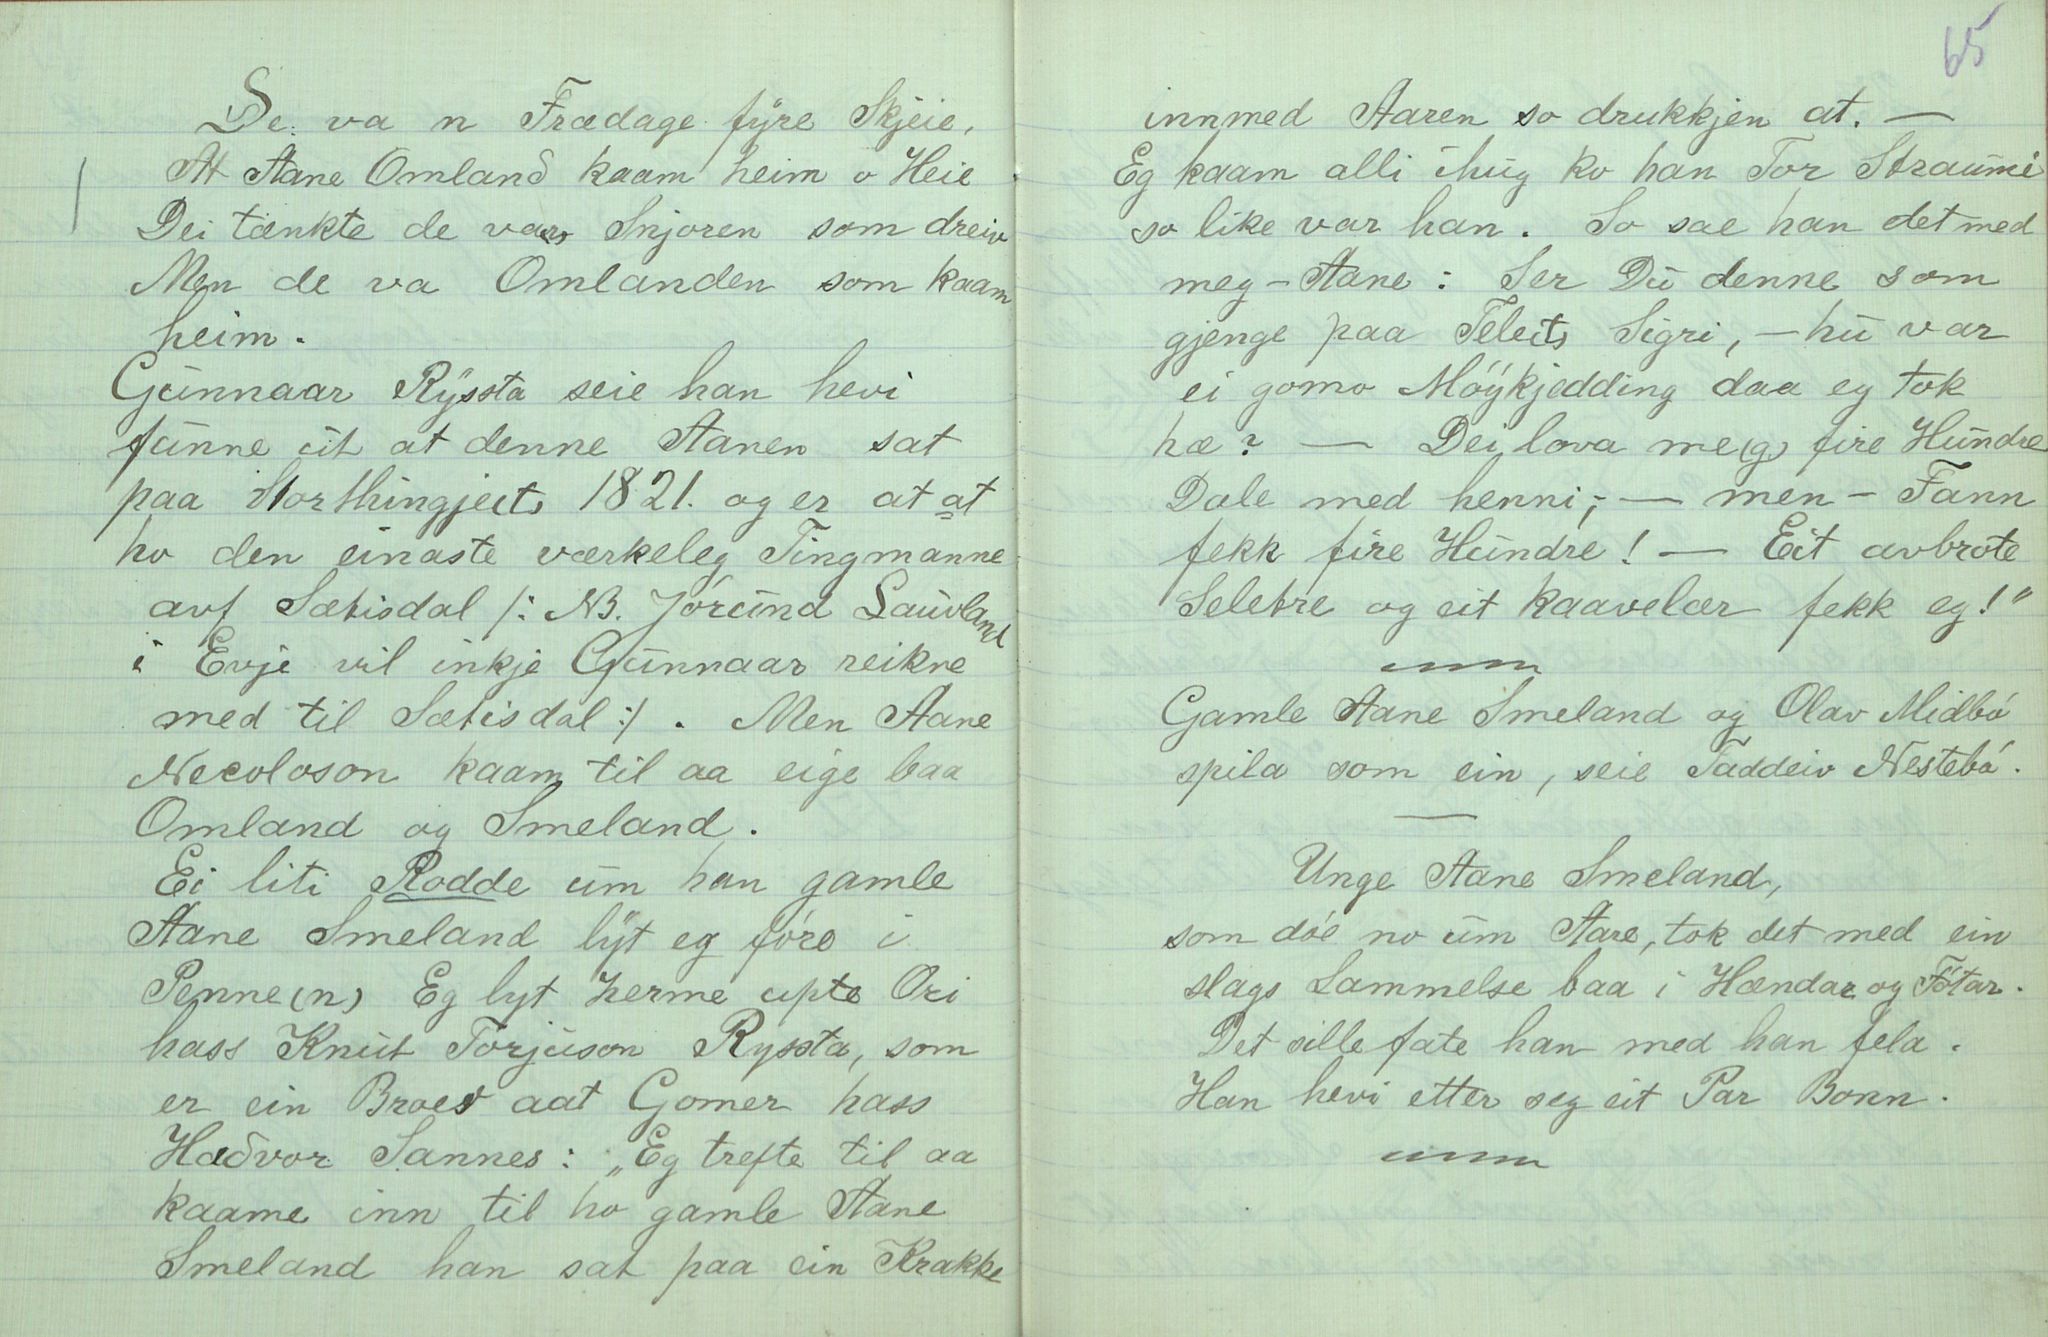 De va n Frædage fyre Skjeie,
At Aane Omland kaam heim o Heie
Dei tænkte de vars Snjoren som dreiv
Men de va Omlanden som kaam
heim.
Gunnaar Ryssta seie han hevi
funne ut at denne Aanen sat
paa Storthingjeits 1821. og er at at
ho den einaste værkeleg Tingmanne
avf Sætisdal /: NB. Jórund Lauvland
i Evje vil inkje Gunnaar reikne
med til Sætisdal :/. Men Aane
Necoloson kaam til aa eige baa
Omland og Smeland.
Ei liti Rodde um han gamle
Aane Smeland lyt eg fóre i
Penne(n) Eg lyt herme upte Ori
hass Knut Torjuson Ryssta, som
er ein Broer aat Gomer hass
Hædvor Sannes: „Eg trefte til aa
kaame inn til ho gamle Aane
Smeland han sat paa ein Krakke
65
innmed Aaren so drukkjen at. —
Eg kaam alli ihug ko han Tor Straumi
so like var han. So sae han det med
meg – Aane: Ser Du denne som
gjenge paa Teleits Sigri, – hu var
ei gomo Móykjedding daa eg tok
hæ? — Dei lova me(g) fire Hundre
Dale med henni; — men – Fann
fekk fire Hundre! — Eit avbrote
Seletre og eit kaavelær fekk eg!"
Gamle Aane Smeland og Olav Midbó
spila som ein, seie Taddeiv Nestebó.
Unge Aane Smeland,
som dóe no um Aare, tok det med ein
slags Lammelse baa i Hændar og Fótar.
Det sille fate han med han fela.
Han hevi etter seg eit Par Bonn.